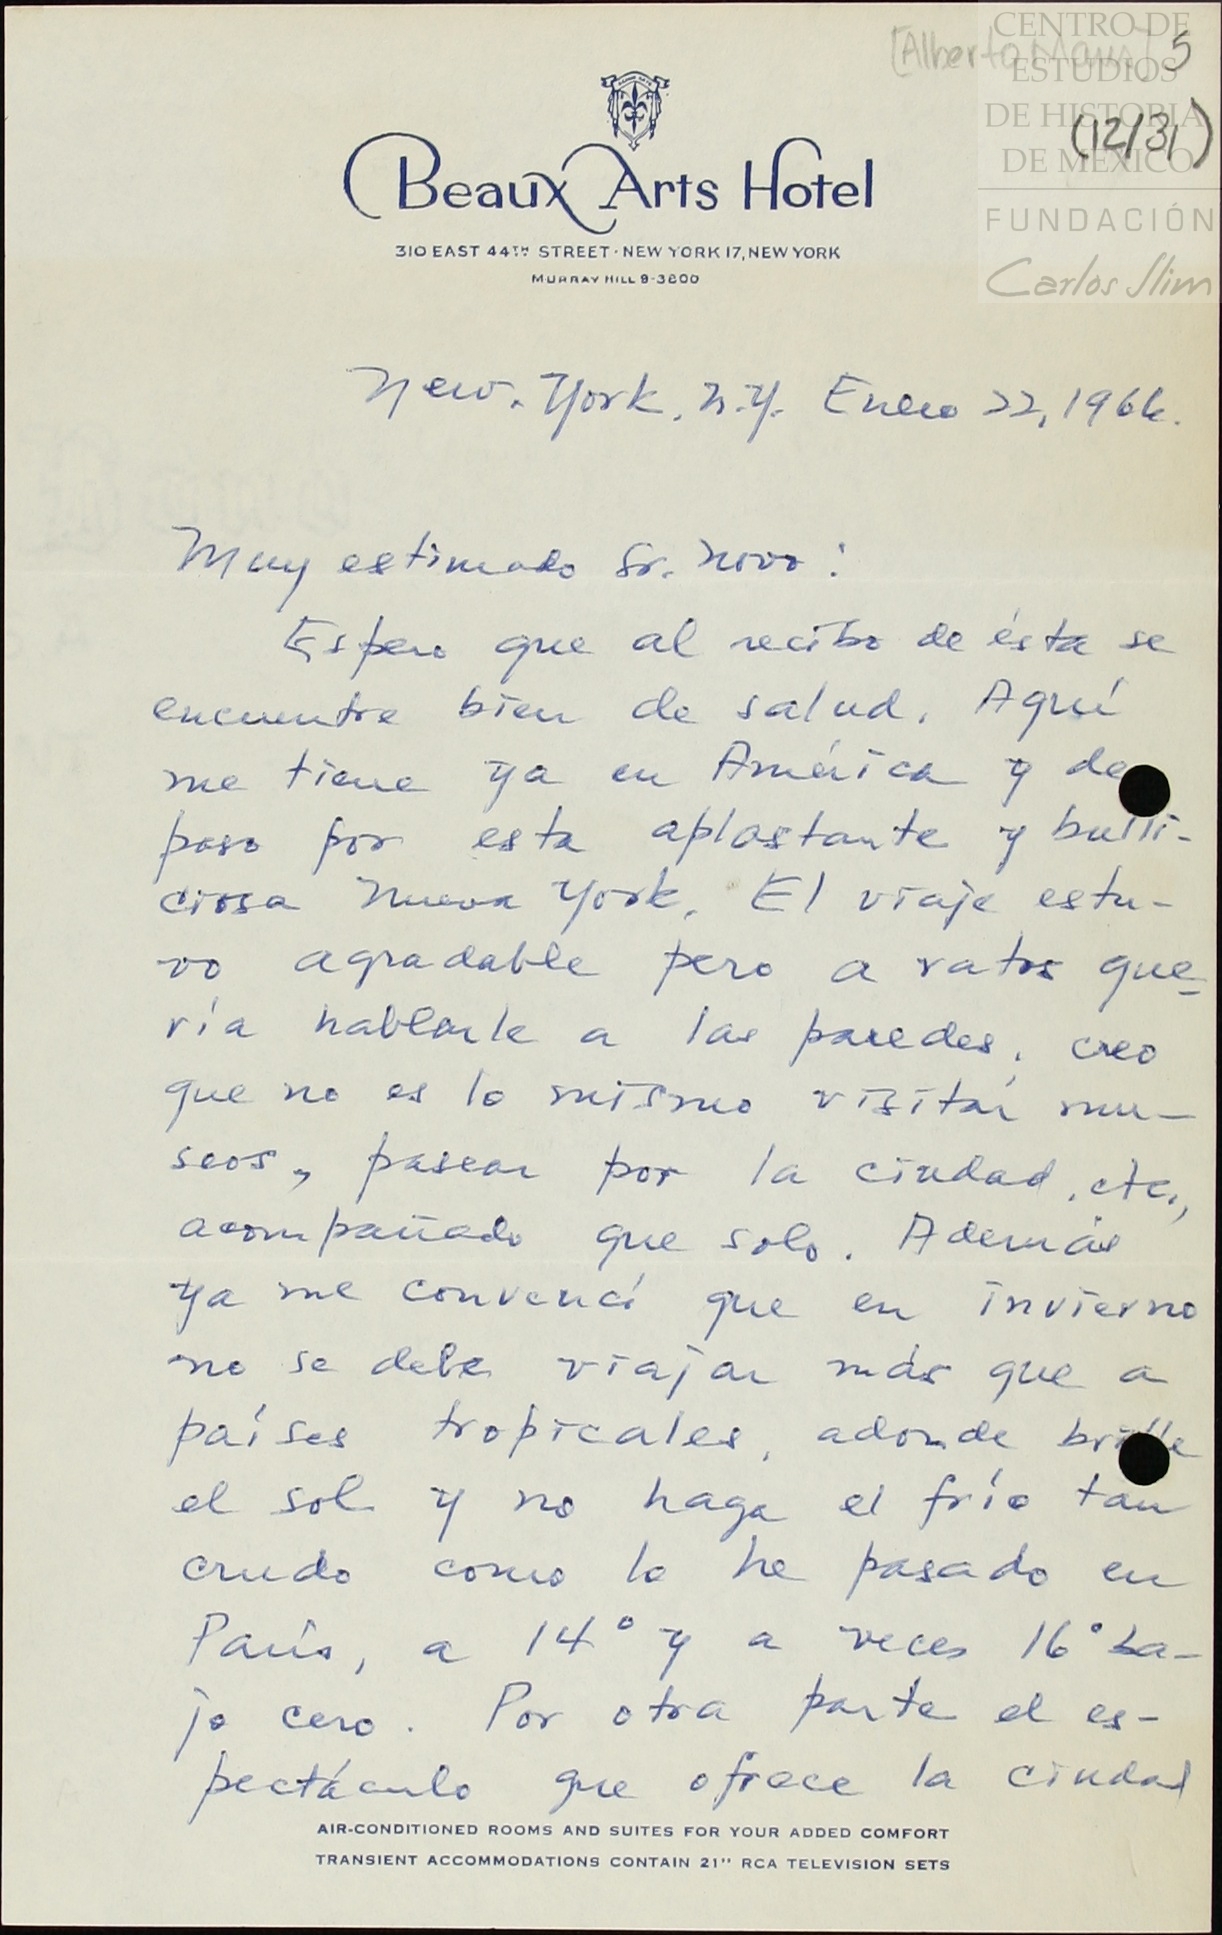 CENTRO DE
ESTUDIOS
DE HISTORIA
DE MÉXICO
FUNDACIÓN
Carlos Slim
[Alberto 5
(12/31)
Beaux Arts Hotel
310 EAST 44TH STREET · NEW YORK 17, NEW YORK
MURRAY HILL 9-3800
New. York, N.Y. Enero 22, 1966.
Muy estimado Sr. Novo:
Espero que al recibo de ésta se
encuentre bien de salud. Aquí
me tiene ya en América y de
paso por esta aplastante y bulli-
ciosa Nueva York. El viaje estu-
vo agradable pero a ratos que-
ría hablarle a las paredes, creo
que no es lo mismo visitar mu-
seos, pasear por la ciudad, etc.,
acompañado que solo. Además
ya me convencí que en invierno
no se debe viajar más que a
países tropicales, adonde brille
el sol y no haga el frío tan
crudo como lo he pasado en
París, a 14° y a veces 16° ba-
jo cero. Por otra parte el es-
pectáculo que ofrece la ciudad
AIR-CONDITIONED ROOMS AND SUITES FOR YOUR ADDED COMFORT
TRANSIENT ACCOMMODATIONS CONTAIN 21" RCA TELEVISION SETS